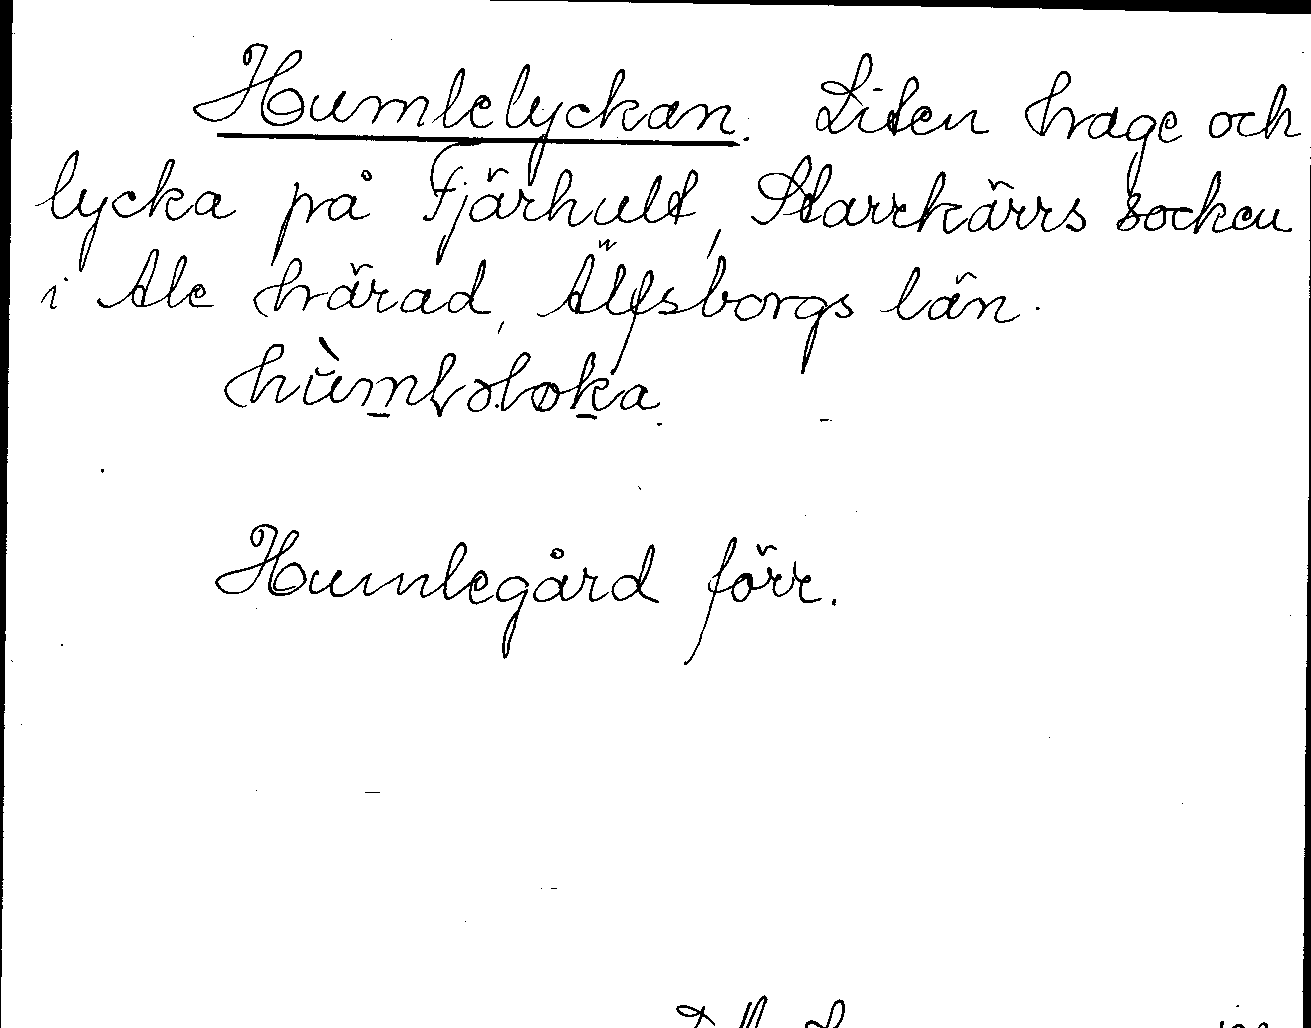 Humlelyckan. Liten hage och
lycka på Fjärhult, Starrkärrs socken
i Ale härad, Älfsborgs län.
Humlegård förr.